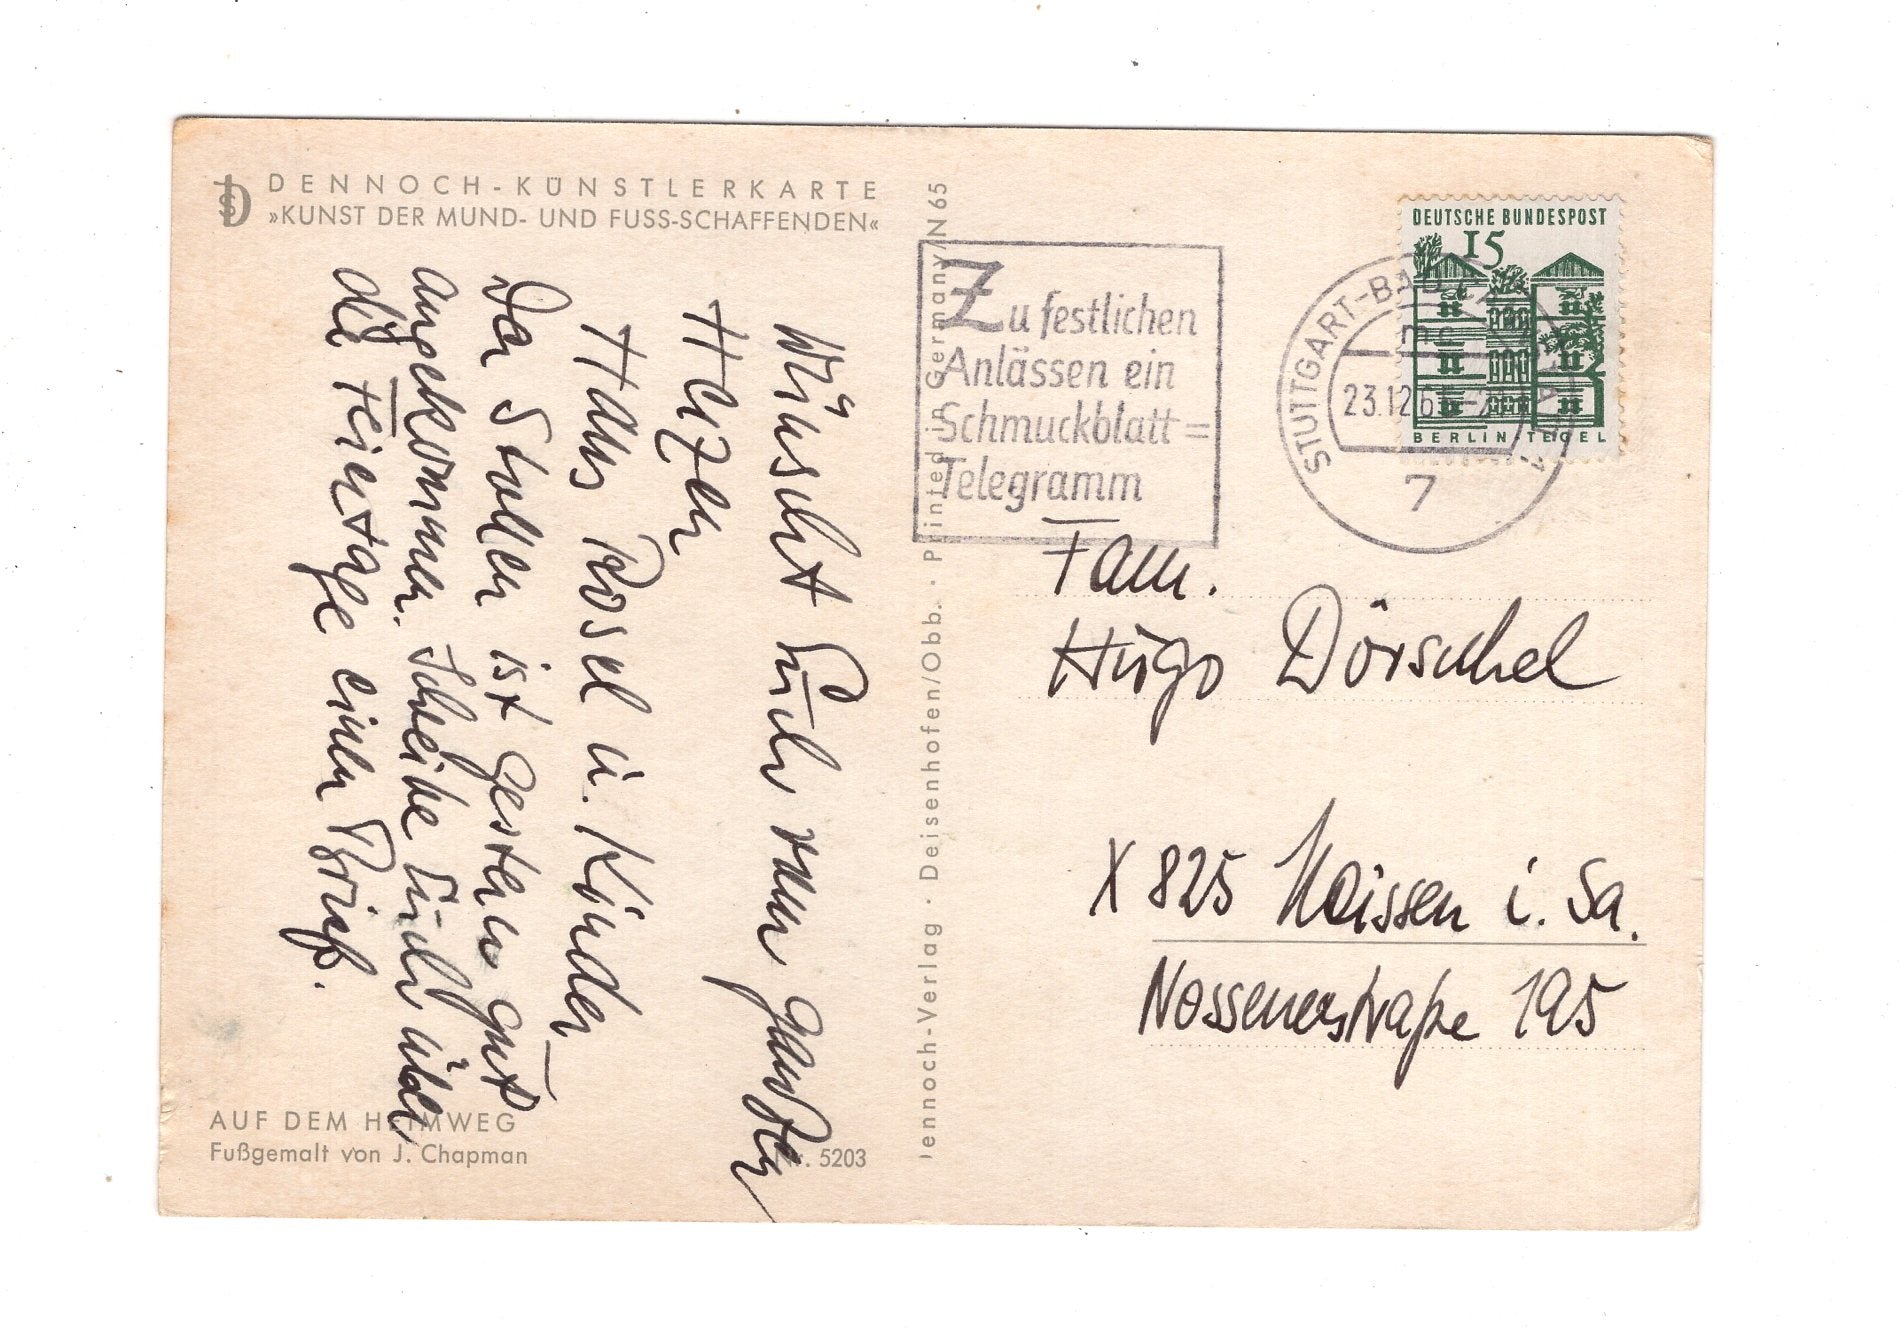 DENNOCH-KÜNSTLERKARTE
»KUNST DER MUND- UND FUSS-SCHAFFENDEN«
Wünscht Euch von ganzem
Herzen
Hans Rosel u. Kinder
Der Stollen ist gestern gut
angekommen. Schreibe Euch über
die Feiertage einen Brief.
AUF DEM HEIMWEG
Fußgemalt von J. Chapman
Nr. 5203
Dennoch-Verlag · Deisenhofen/Obb. · Printed in Germany/N 65
Zu festlichen
Anlässen ein
Schmuckblatt=
Telegramm
STUTTGART-BAD
23.12.6
7
DEUTSCHE BUNDESPOST
15
BERLIN-TEGEL
Fam.
Hugo Dörschel
X 825 Meissen i. Sa.
Nossenerstraße 195